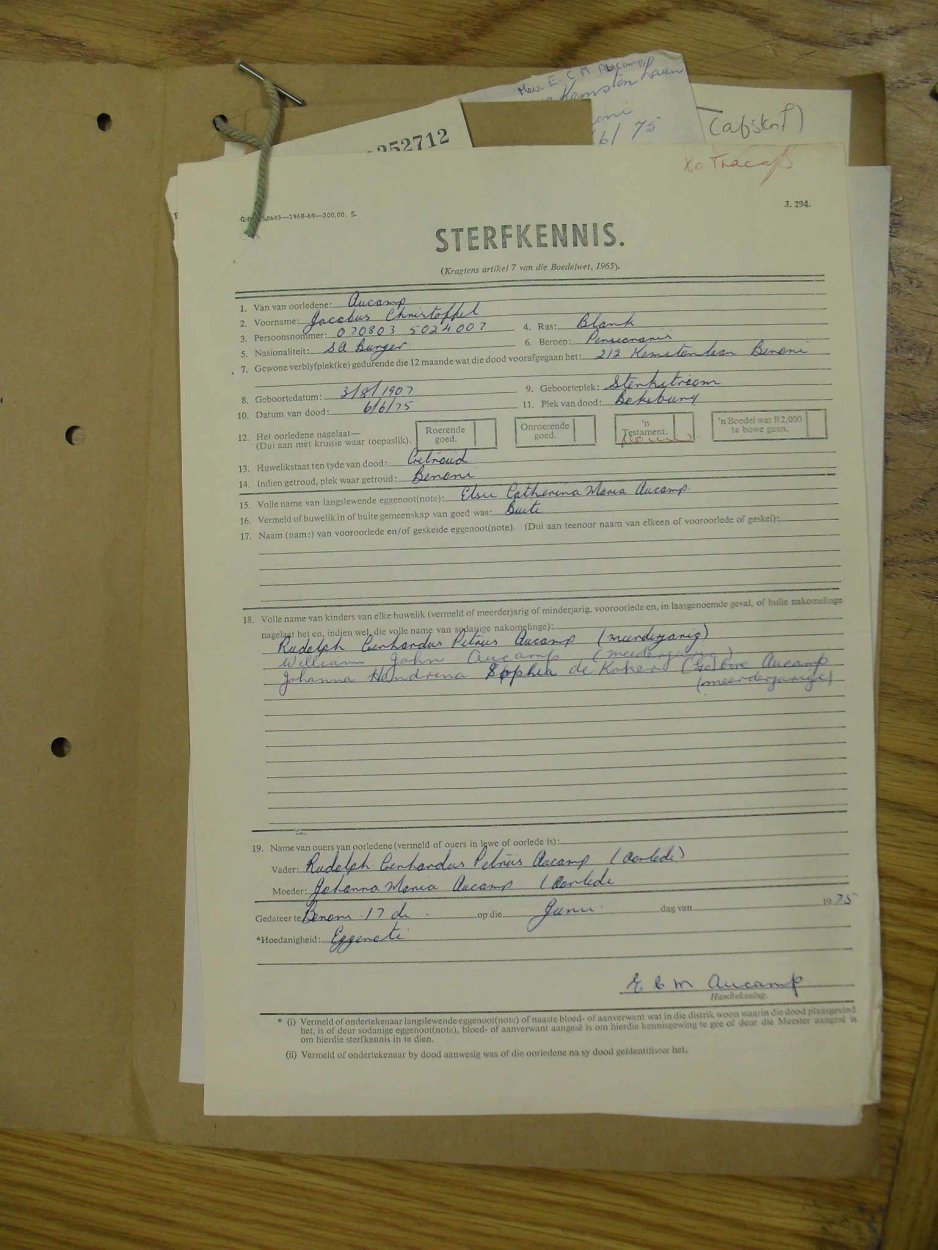 Mev. E. C. M. Aucamp
Kemston Laan
6/75
(afskrif)
252712
J. 294.
STERFKENNIS.
(Kragtens artikel 7 van die Boedelwet, 1965).
1. Van van oorledene: Aucamp
2. Voorname: Jacobus Christoffel
3. Persoonsnommer: 070803 5024007 4. Ras: Blank
5. Nasionaliteit: SA Burger 6. Beroep: Pensionaris
7. Gewone verblyfplek(ke) gedurende die 12 maande wat die dood voorafgegaan het: 212 Kemstonlaan Benoni
8. Geboortedatum: 3/8/1907 9. Geboorteplek: Sterkstroom
10. Datum van dood: 6/6/75 11. Plek van dood: Boksburg
12. Het oorledene nagelaat—
(Dui aan met kruisie waar toepaslik).
Roerende goed.
Onroerende goed.
'n Testament.
'n Boedel wat R2,000 te bowe gaan.
13. Huwelikstaat ten tyde van dood: Getroud
14. Indien getroud, plek waar getroud: Benoni
15. Volle name van langslewende eggenoot(note): Elsie Catherina Maria Aucamp
16. Vermeld of huwelik in of buite gemeenskap van goed was: Buite
17. Naam (name) van vooroorlede en/of geskeide eggenoot(note). (Dui aan teenoor naam van elkeen of vooroorlede of geskei):
18. Volle name van kinders van elke huwelik (vermeld of meerderjarig of minderjarig, vooroorlede en, in laasgenoemde geval, of hulle nakomelinge
nagelaat het en, indien wel, die volle name van sodanige nakomelinge):
Rudolph Gerhardus Petrus Aucamp (meerderjarig)
William John Aucamp (meerderjarig)
Johanna Hendrina Sophia de (Gebore Aucamp
(meerderjarige)
19. Name van ouers van oorledene (vermeld of ouers in lewe of oorlede is):
Vader: Rudolph Gerhardus Petrus Aucamp (Oorlede)
Moeder: Johanna Maria Aucamp (Oorlede
Gedateer te Benoni 17 de op die Junie dag van 1975
*Hoedanigheid: Eggenote
E C M Aucamp
Handtekening.
* (i) Vermeld of ondertekenaar langslewende eggenoot(note) of naaste bloed- of aanverwant wat in die distrik woon waarin die dood plaasgevind
het, is of deur sodanige eggenoot(note), bloed- of aanverwant aangesê is om hierdie kennisgewing te gee of deur die Meester aangesê is
om hierdie sterfkennis in te dien.
(ii) Vermeld of ondertekenaar by dood aanwesig was of die oorledene na sy dood geïdentifiseer het.